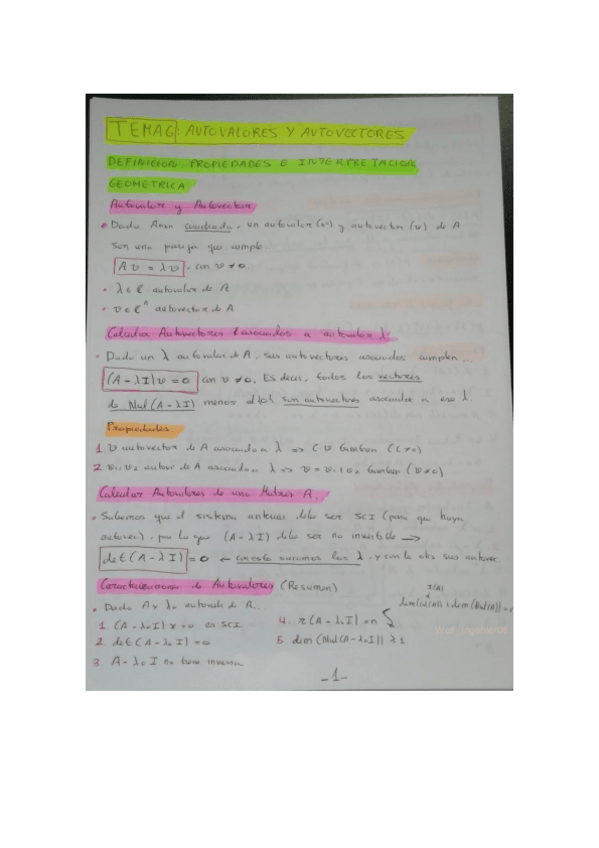 TEMA 6: AUTOVALORES Y AUTOVECTORES
DEFINICION, PROPIEDADES E INTERPRETACION
GEOMETRICA
Autovalor y Autovector
• Dada Anxn cuadrada, un autovalor (λ) y autovector (v) de A
son una pareja que cumple
Av = λv, con v ≠ 0
• λ ∈ C autovalor de A
• v ∈ Cⁿ autovector de A
Calcular Autovectores asociados a autovalor λ
• Dado un λ autovalor de A, sus autovectores asociados cumplen...
(A - λI)v = 0 con v ≠ 0. Es decir, todos los vectores
de Nul(A - λI) menos el son autovectores asociados a ese λ.
Propiedades.
1 v autovector de A asociado a λ => c·v tambien (c≠0)
2 v₁, v₂ autovec de A asociado a λ => v = v₁ + v₂ tambien (v≠0)
Calcular Autovalores de una Matriz A.
• Sabemos que el sistema anterior debe ser SCI (para que haya
autovec), por lo que (A - λI) debe ser no invertible →
det(A - λI) = 0 ← con esto sacamos los λ, y con lo otro sus autovec
Caracterizacion de Autovalores (Resumen)
• Dada A y λ₀ autovalor de A...
1. (A - λ₀I) x = 0 es SCI
2. det(A - λ₀I) = 0
3. A - λ₀I no tiene inversa
4. r(A - λ₀I) < n
dim(Col(A)) + dim(Nul(A)) = n
r(A)
5. dim(Nul(A - λ₀I)) ≥ 1
-1-